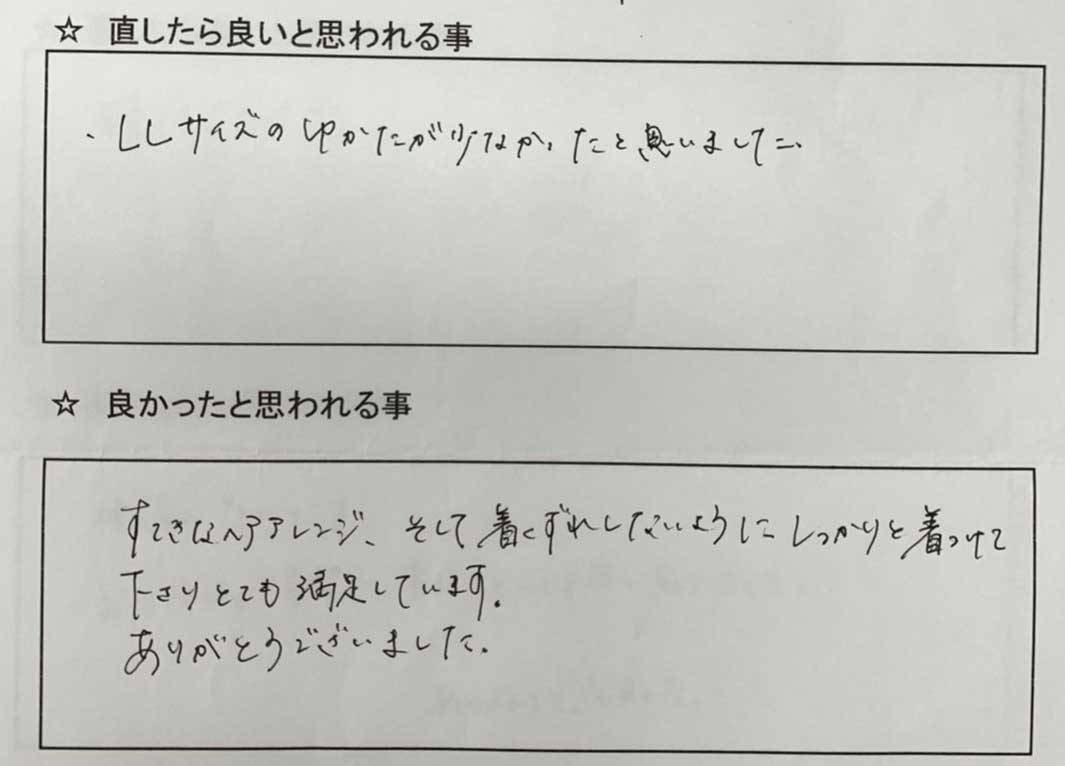 ☆ 直したら良いと思われる事
・LLサイズのゆかたが少なかったと思いました。
☆ 良かったと思われる事
すてきなヘアアレンジ、そして着くずれしないようにしっかりと着つけて
下さりとても満足しています。
ありがとうございました。